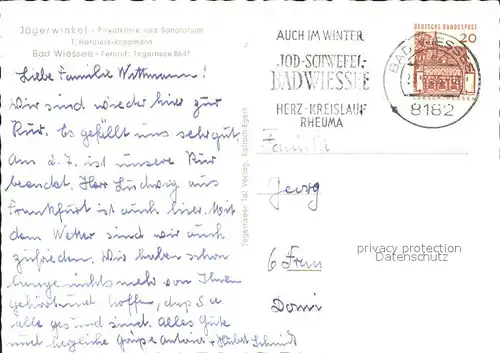 Jägerwinkel - Privatklinik und Sanatorium
Bad Wiessee - Fernruf: Tegernsee 8641
Liebe Familie Wittmann!
Wir sind wieder hier zur
Kur. Es gefällt uns sehr gut.
Am 2.7. ist unsere Kur
beendet. Herr Ludwig aus
Frankfurt ist auch hier. Mit
dem Wetter sind wir auch
zufrieden. Wir haben schon
lange nichts mehr von Ihnen
gehört und hoffen, daß Sie
alle gesund sind. Alles Gute
und herzliche Grüße Antonie + Hubert Schmidt
Tegernseer Tal Verlag Rottach-Egern
AUCH IM WINTER
JOD-SCHWEFEL-
BAD WIESSEE
HERZ-KREISLAUF
RHEUMA
DEUTSCHE BUNDESPOST
20
BAD WIESSEE
8182
Familie
Georg
6 Fran
Domi
privacy protection
Datenschutz